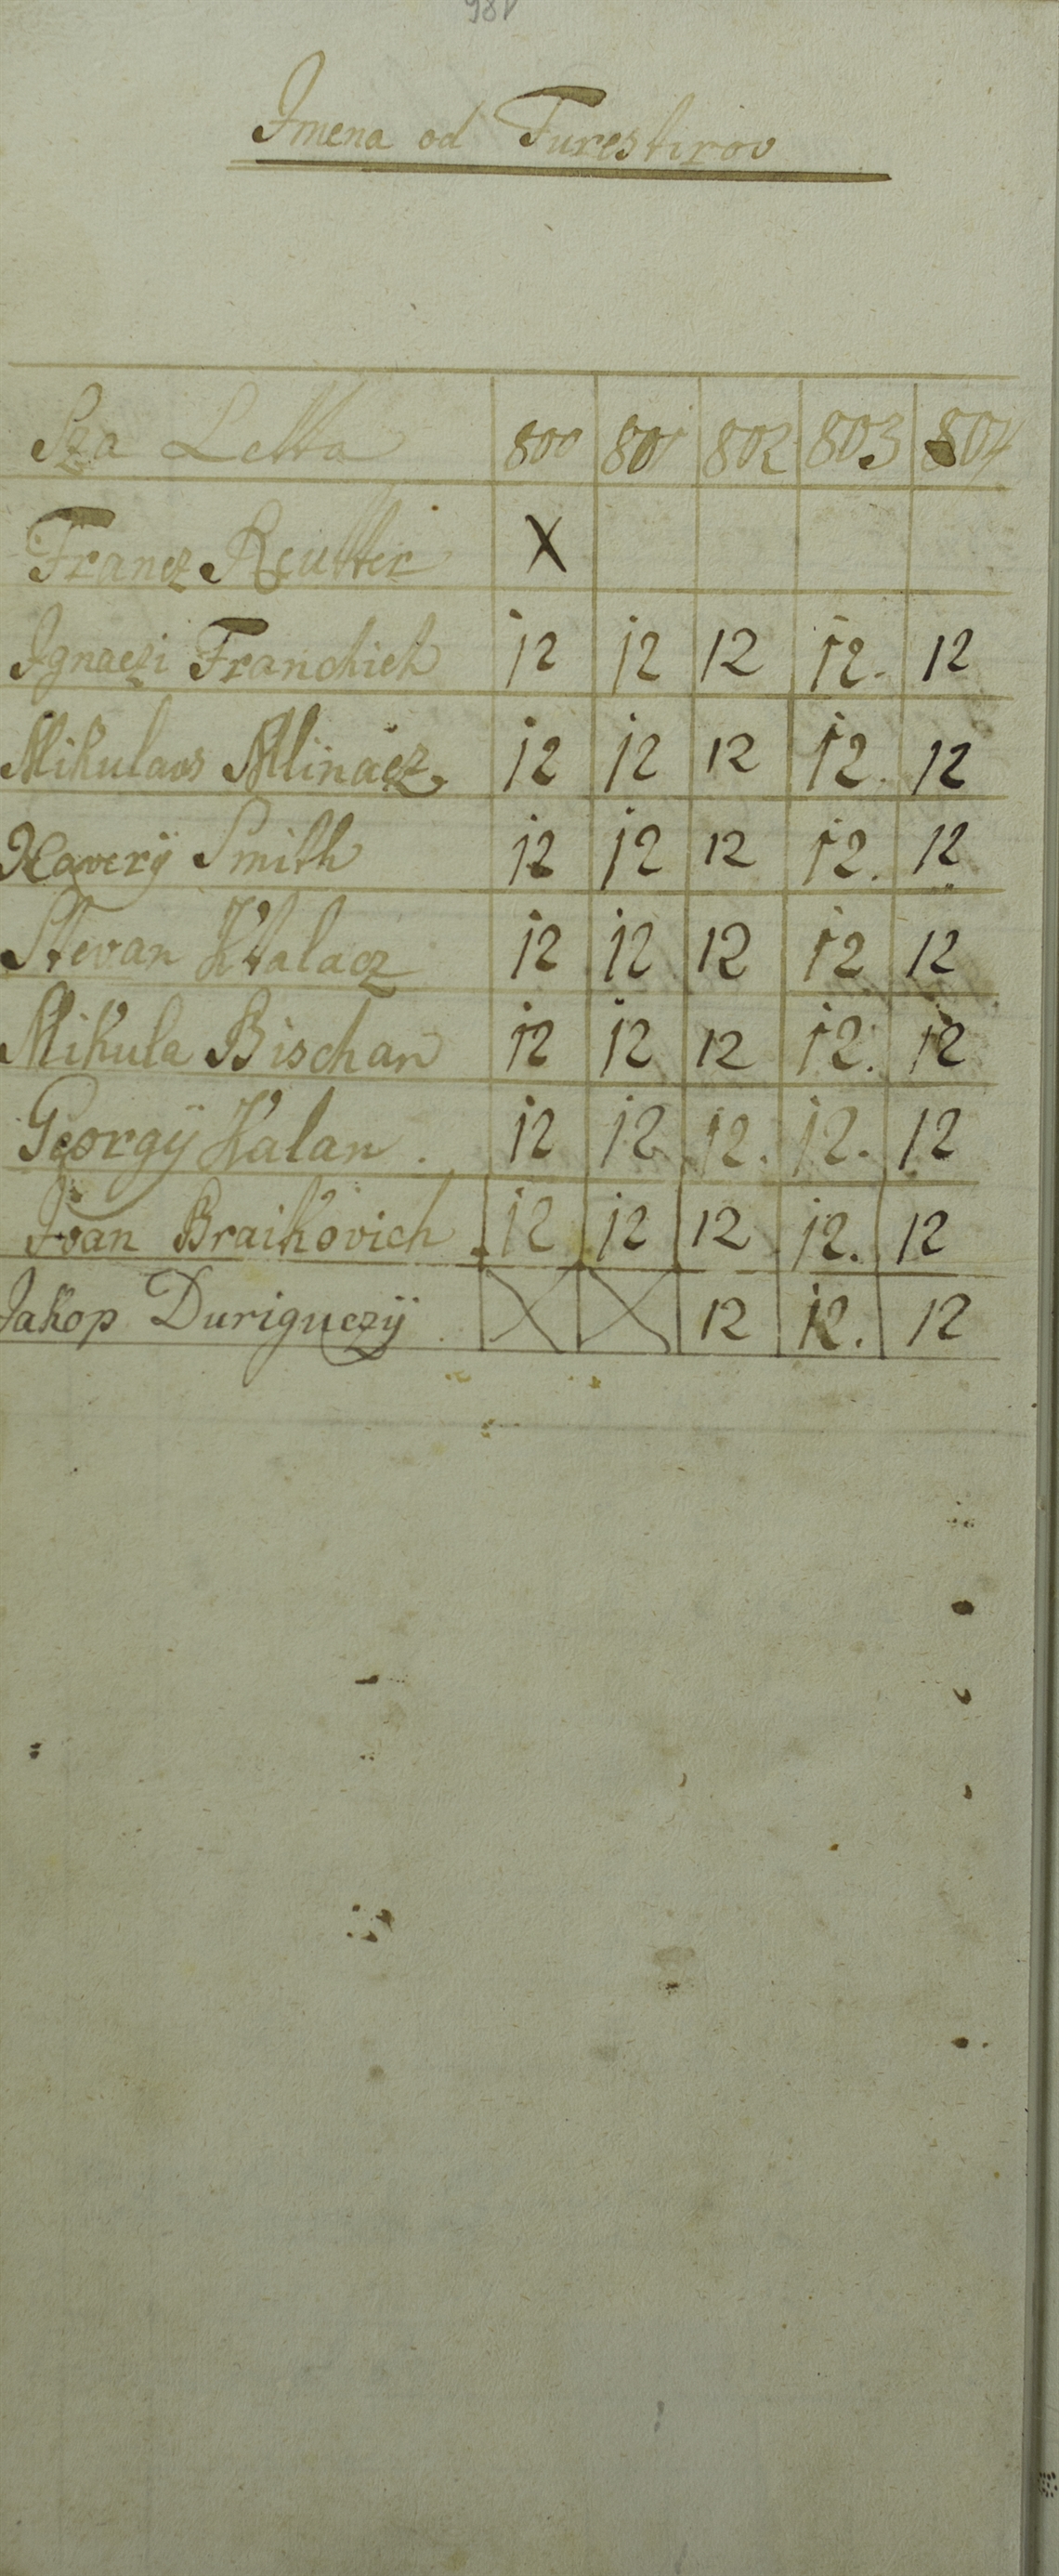 98v
Imena od Furestirov
Sza Letta 800 801 802 803 804
Francz Reutter X
Ignaczi Franchich 12 12 12 12. 12
Mikulaos Mlinacz 12 12 12 12. 12
Xavery Smith 12 12 12 12. 12
Stevan 12 12 12 12 12
Mikula Bischan 12 12 12 12. 12
Georgÿ Kalan. 12 12 12. 12. 12
Ivan Braikovich 12 12 12 12. 12
Jakop Duriguczÿ X X 12 12. 12